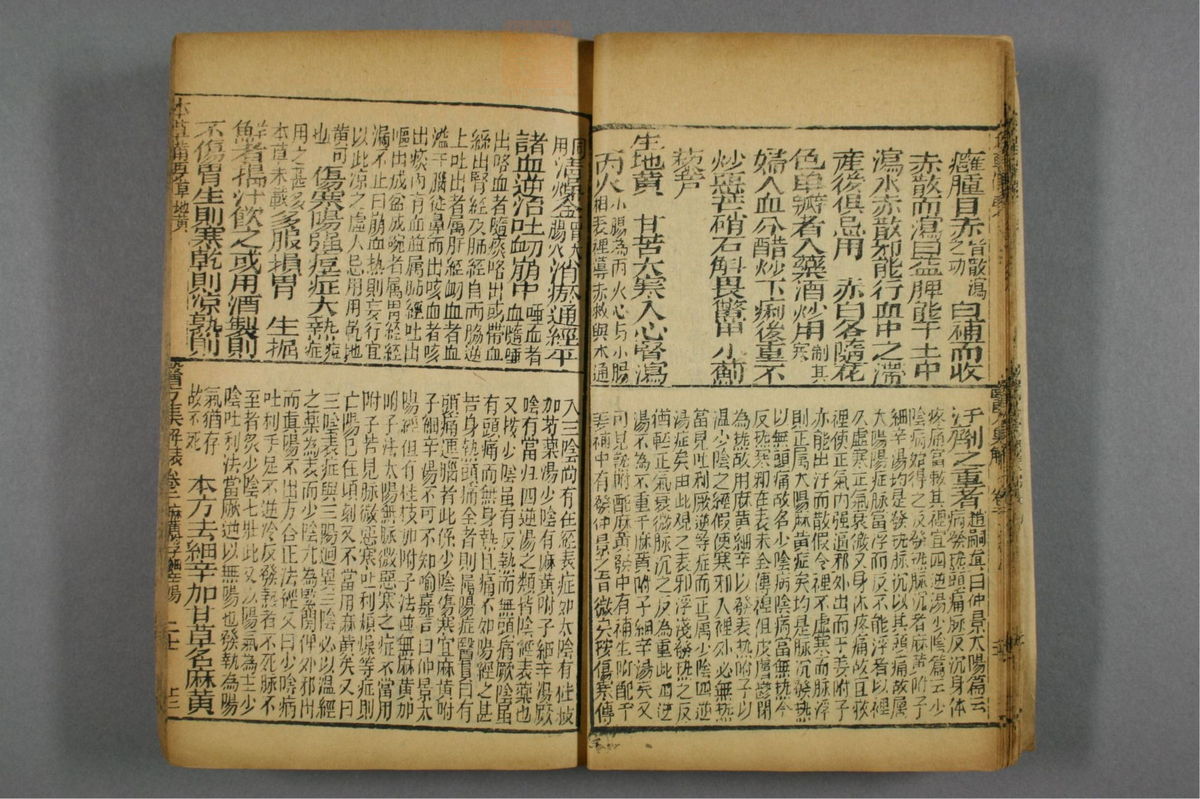 癰腫目赤皆散瀉之功 白補而收
赤散而瀉白益脾能于土中
瀉水赤散邪能行血中之滯
產後俱忌用 赤白各隨花
色單瓣者入藥酒炒用制其寒
婦人血分醋炒下痢後重不
炒惡芒硝石斛畏鱉甲小薊
藜蘆
生地黃 甘苦大寒入心腎瀉
丙火小腸為丙火心与小腸相表裡導赤散與木通
同用清燥金胃大腸火消瘀通經平
諸血逆治吐衂崩中唾血者血隨唾
出咯血者隨痰咯出或帶血
絲出腎經及肺經自兩脇逆
上吐出者属肝經衂血者血
溢于腦從鼻而出咳血者咳
出痰內有血並属肺經吐出
嘔出成盆成碗者属胃經經
漏不止曰崩血熱則妄行宜
以此凉之虛人忌用用乾地
黃可也 傷寒陽強痘症大熱痘症
用之甚多本草未載多服損胃 生掘
鮮者搗汁飲之或用酒製則
不傷胃生則寒乾則涼熟則
本草備要 草 地黃
汗劑之重者趙嗣真曰仲景太陽篇云
病發熱頭痛脈反沉身体
疼痛當救其裡宜四逆湯少陰篇云少
陰病始得之反發熱脈沉者麻黃附子
細辛湯均是發熱脈沉以其頭痛故属
太陽陽症脈當浮而反不能浮者以裡
久虛寒正氣衰微又身体疼痛故宜救
裡使正氣內強逼邪外出而干姜附子
亦能出汗而散假令裡不虛寒而脈浮
則正属太陽麻黃症矣均是脈沉發熱
以無頭痛故名少陰病陰病當無熱今
反熱寒邪在表未全傳裡但皮膚鬱閉
為熱故用麻黃細辛以發表熱附子以
温少陰之經假使寒邪入裡外必無熱
當見吐利厥逆等症而正属少陰四逆
湯症矣由此觀之表邪浮淺發熱之反
猶輕正氣衰微脈沉之反為重此四逆
湯不為不重于麻黃附子細辛湯矣又
可見熟附配麻黃發中有補生附配干
姜補中有發仲景之旨微矣按傷寒傳
入三陰尚有在經表症如太陰有桂枝
加芍藥湯少陰有麻黃附子細辛湯厥
陰有當归四逆湯之類皆陰經表藥也
又按少陰雖有反熱而無頭痛厥陰虽
有頭痛而無身熱且痛不如陽經之甚
若身熱頭痛全者則属陽症醫貫曰有
頭痛連腦者此係少陰傷寒宜麻黃附
子細辛湯不可不知喻嘉言曰仲景太
陽經但有桂枝加附子法並無麻黃加
附子法太陽無脈微惡寒之症不當用
附子若見脈微惡寒吐利煩燥等症則
亡陽已在頃刻又不當用麻黃矣又曰
三陰表症與三陽迥異三陰必以温經
之藥為表而少陰尤為緊關俾外邪出
而真陽不出方合正法經又曰少陰病
吐利手足不逆冷反發熱者不死脈不
至者炙少陰七壯此又以陽氣為主少
陰吐利法當厥逆以無陽也發熱為陽
氣猶存故不死 本方去細辛加甘草名麻黃
醫方集解 發表 卷二 麻黃附子細辛湯